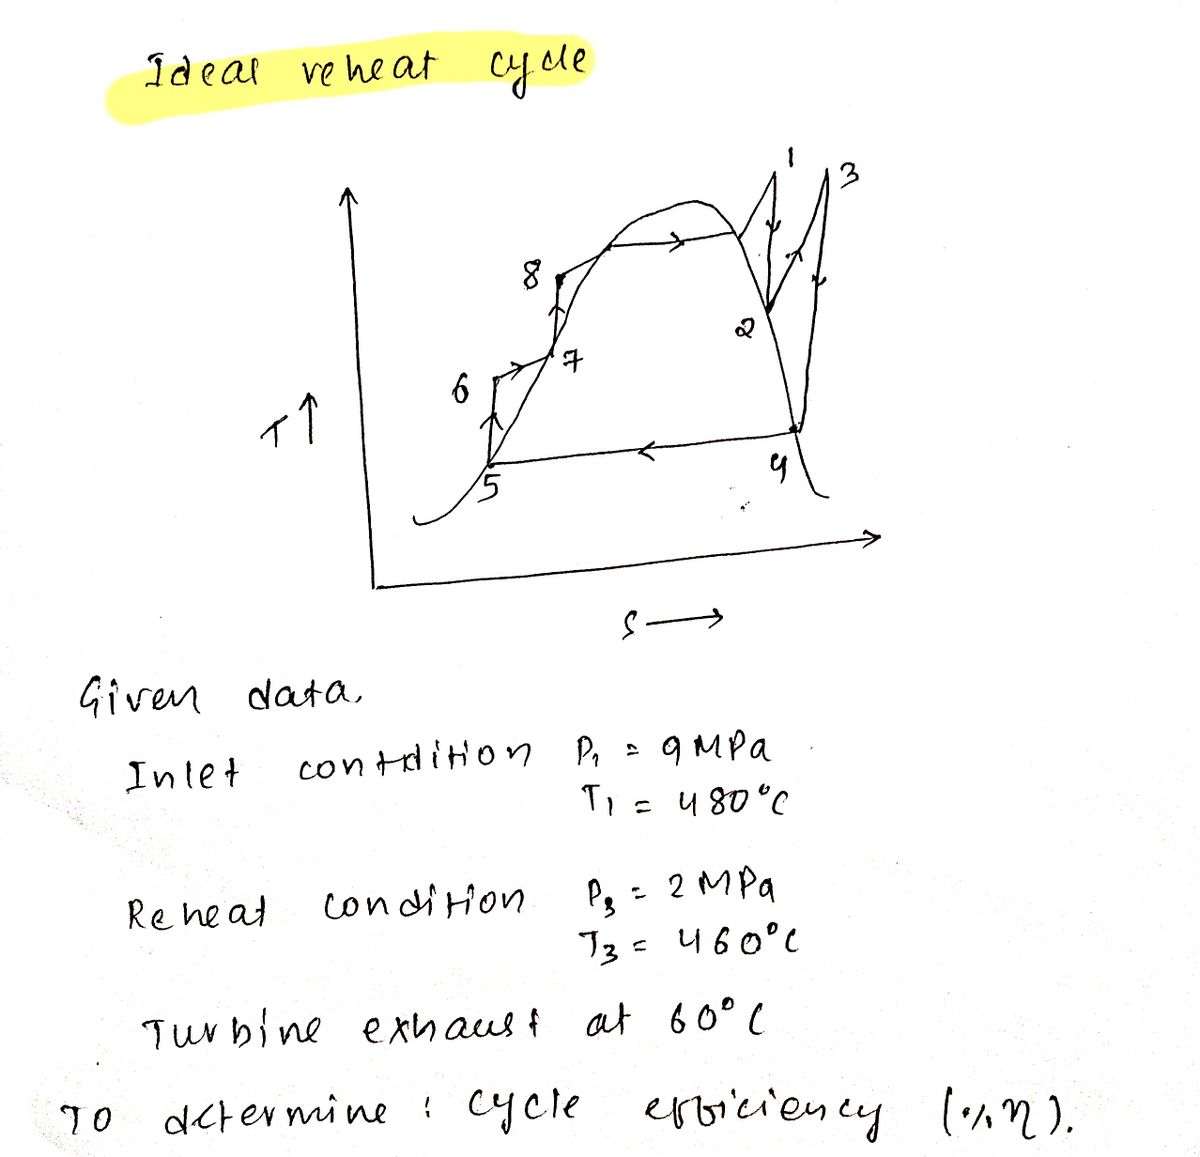 Ideal reheat cycle
1
3
8
2
7
6
T↑
4
5
S →
Given data.
Inlet contdition P₁ = 9 MPa
T₁ = 480°C
Reheat condition P₃ = 2 MPa
T₃ = 460°C
Turbine exhaust at 60°C
To determine : cycle efficiency (% η).